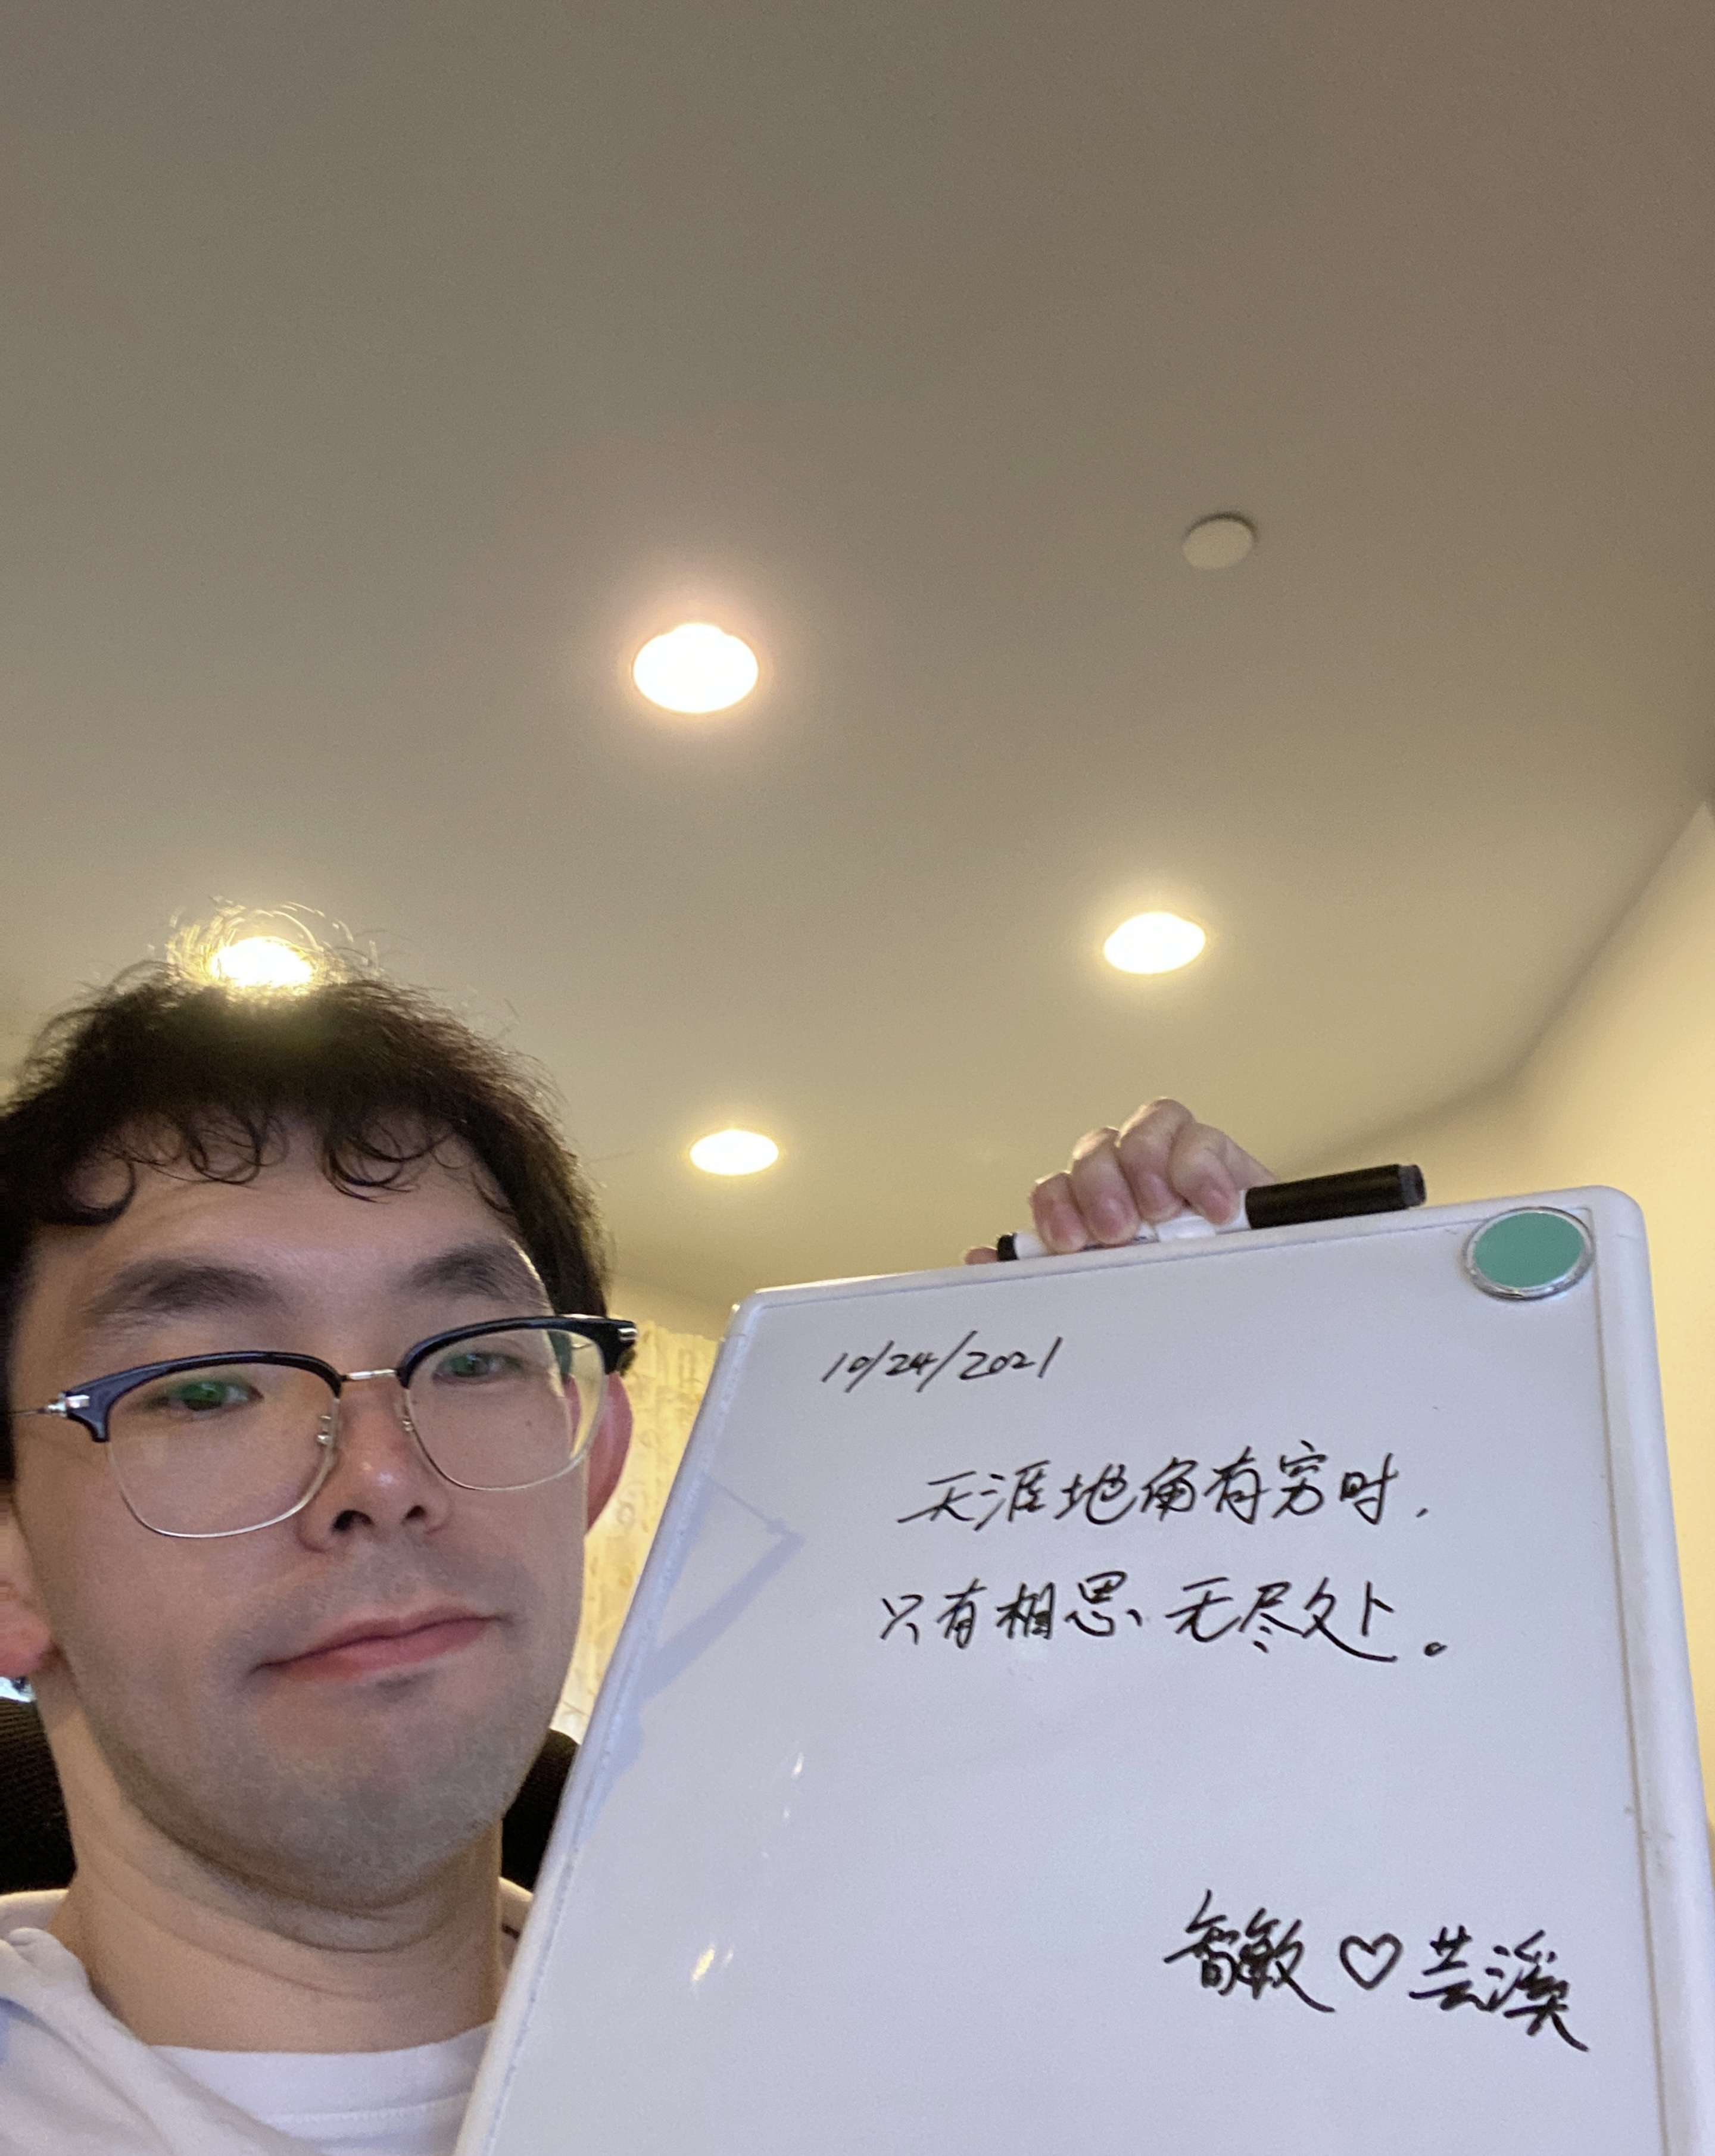 10/24/2021
天涯地角有穷时,
只有相思、无尽处。
智敏♡芸溪